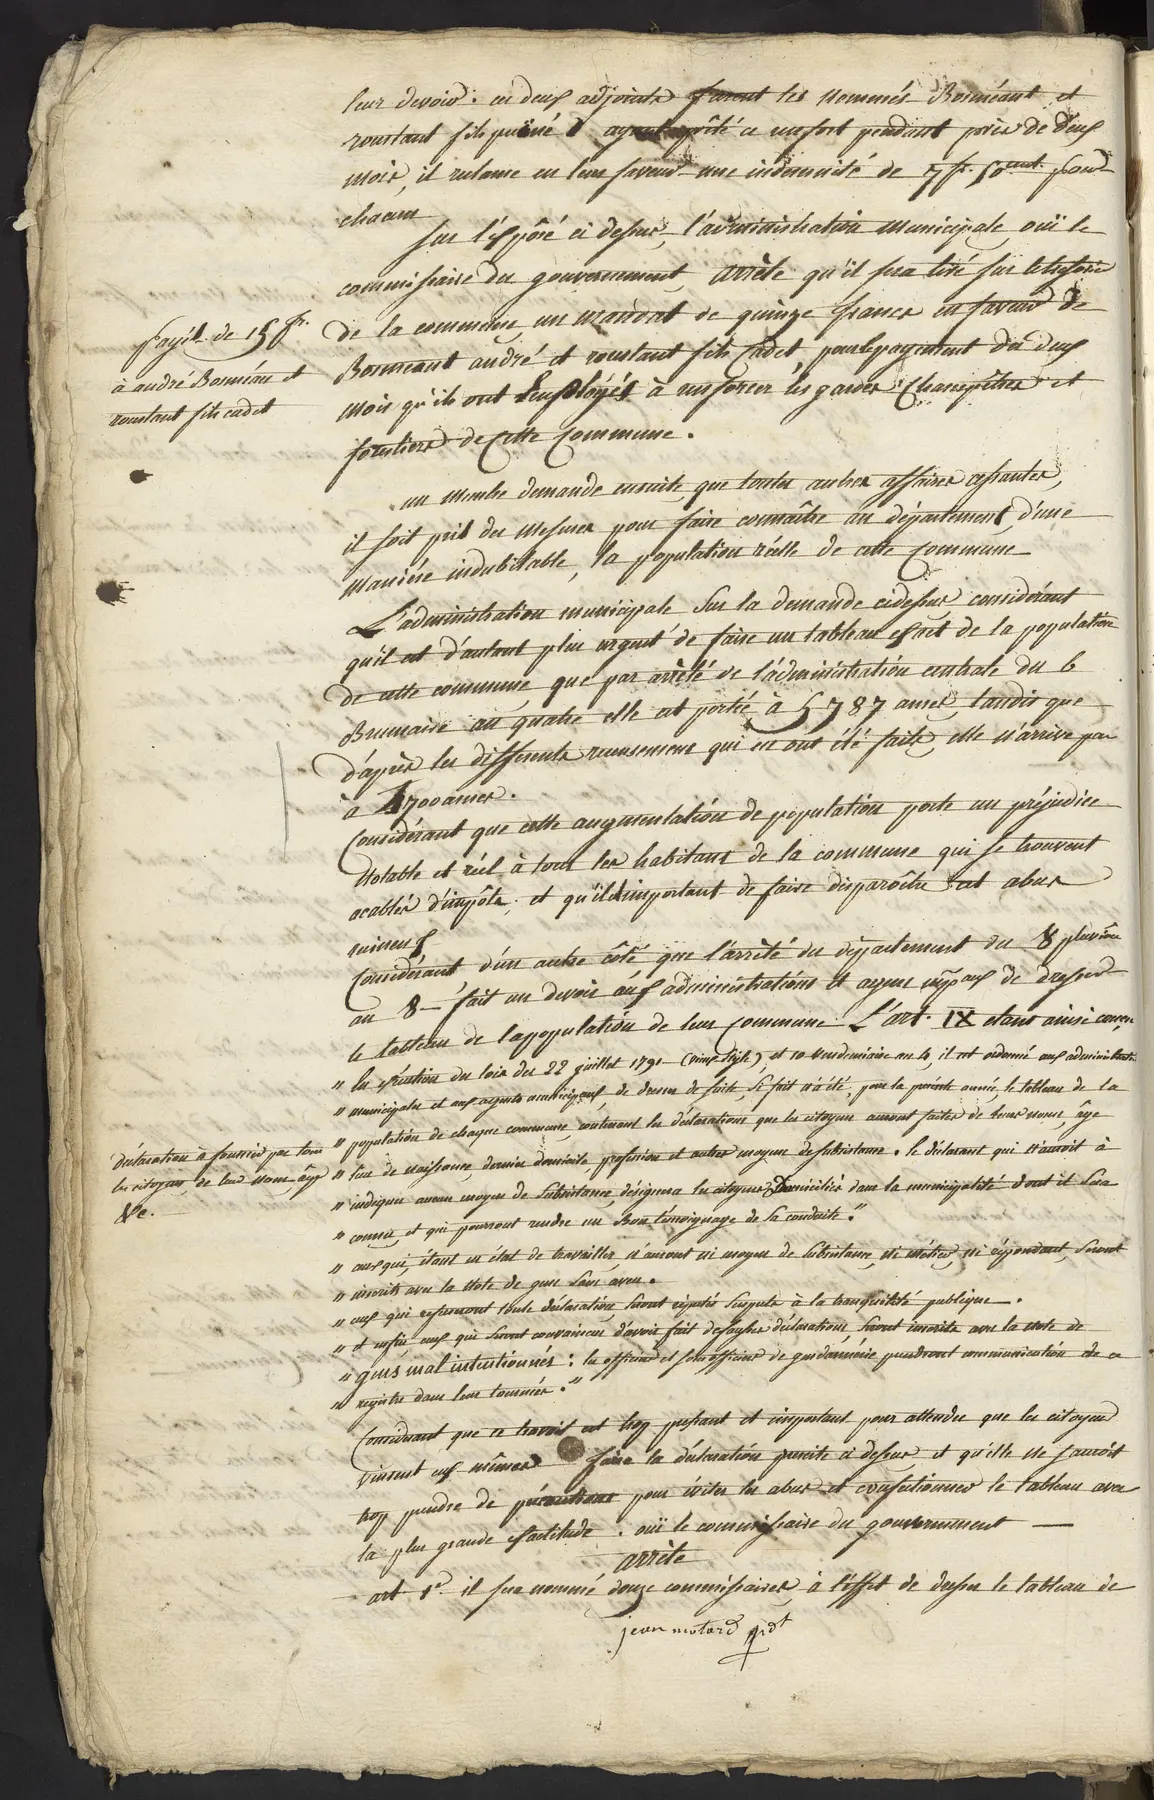 leur devoir : ces deux adjoints furent les nommés Bosméant et
roustant fils puiné ayant prêté ce renfort pendant près de deux
mois, il reclame en leur faveur une indemnité de 7 fr. 50 cent. pour
chacun
Sur l'exposé ci dessus, l'administration Municipale, ouï le
commissaire du gouvernement, arrête qu'il sera tiré sur le trésorier
de la commune un mandat de quinze francs en faveur de
Bosmeant andré et roustant fils Cadet, pour le payement des deux
mois qu'ils ont Employés à renforcer les gardes Champêtres et
forestiers de Cette Commune.
payé de 15 fr.
à andré Bosméan et
roustant fils cadet
un membre demande ensuite, que toutes autres affaires cessantes,
il soit pris des Mesures pour faire connaître au département, d'une
Manière indubitable, la population réelle de cette Commune
L'administration municipale sur la demande cidessus considérant
qu'il est d'autant plus urgent de faire un tableau exact de la population
de cette commune, que par arrêté de l'administration centrale du 6
Brumaire an quatre elle est portée à 5787 ames, tandis que
d'après les differents recensemens qui en ont été faits, elle n'arrive pas
à 4700 ames.
Considérant que cette augmentation de population porte un préjudice
Notable et réel à tous les habitans de la commune qui se trouvent
acablés d'impôts, et qu'il est important de faire disparôitre cet abus
ruineux
Considérant d'un autre côté que l'arrêté du département du 8 pluviose
an 8 fait un devoir aux administrations et agens mpaux de dresser
le tableau de la population de leur Commune. L'art. IX etant ainsi conçu,
" les exécution des loix des 22 juillet 1791 (vieux style), et 10 vendemiaire an 4, il est ordonné aux administrations
" municipales et aux agents municipaux, de dresser de suite, si fait n'a été, pour la présente année, le tableau de la
" population de chaque commune, contenant les déclarations que les citoyens auront faites de leurs noms, âge
" lieu de naissance, dernier domicile, profession et autres moyens de subsistance. le déclarant qui n'auroit à
" indiquer aucun moyen de subsistance, désignera les citoyens Domiciliés dans la municipalité dont il sera
" connu, et qui pourront rendre un Bon témoignage de sa conduite."
déclaration à fournir par tous
les citoyens, de leur nom, âge
&c.
" ceux qui, étant en état de travailler, n'auront ni moyen de subsistance, ni métier, ni répondant, seront
" inscrits avec la Note de gens sans aveu.
" ceux qui refuseront toute déclaration, seront réputés suspects à la tranquillité publique.
" et enfin, ceux qui seront convaincus d'avoir fait de fausses déclarations, seront inscrits avec la note de
" gens mal intentionnés : les officiers et sous officiers de gendarmerie prendront communication de ce
" registre dans leurs tournées."
Considérant que ce travail est trop pressant et important pour attendre que les citoyens
vinrent eux mêmes faire la déclaration prescrite ci dessus, et qu'elle ne sauroit
trop prendre de précautions pour éviter les abus et confectionner le tableau avec
la plus grande exactitude. ouï le commissaire du gouvernement
arrête
art. 1er il sera nommé douze commissaires, à l'effet de dresser le tableau de
jean motard pdt